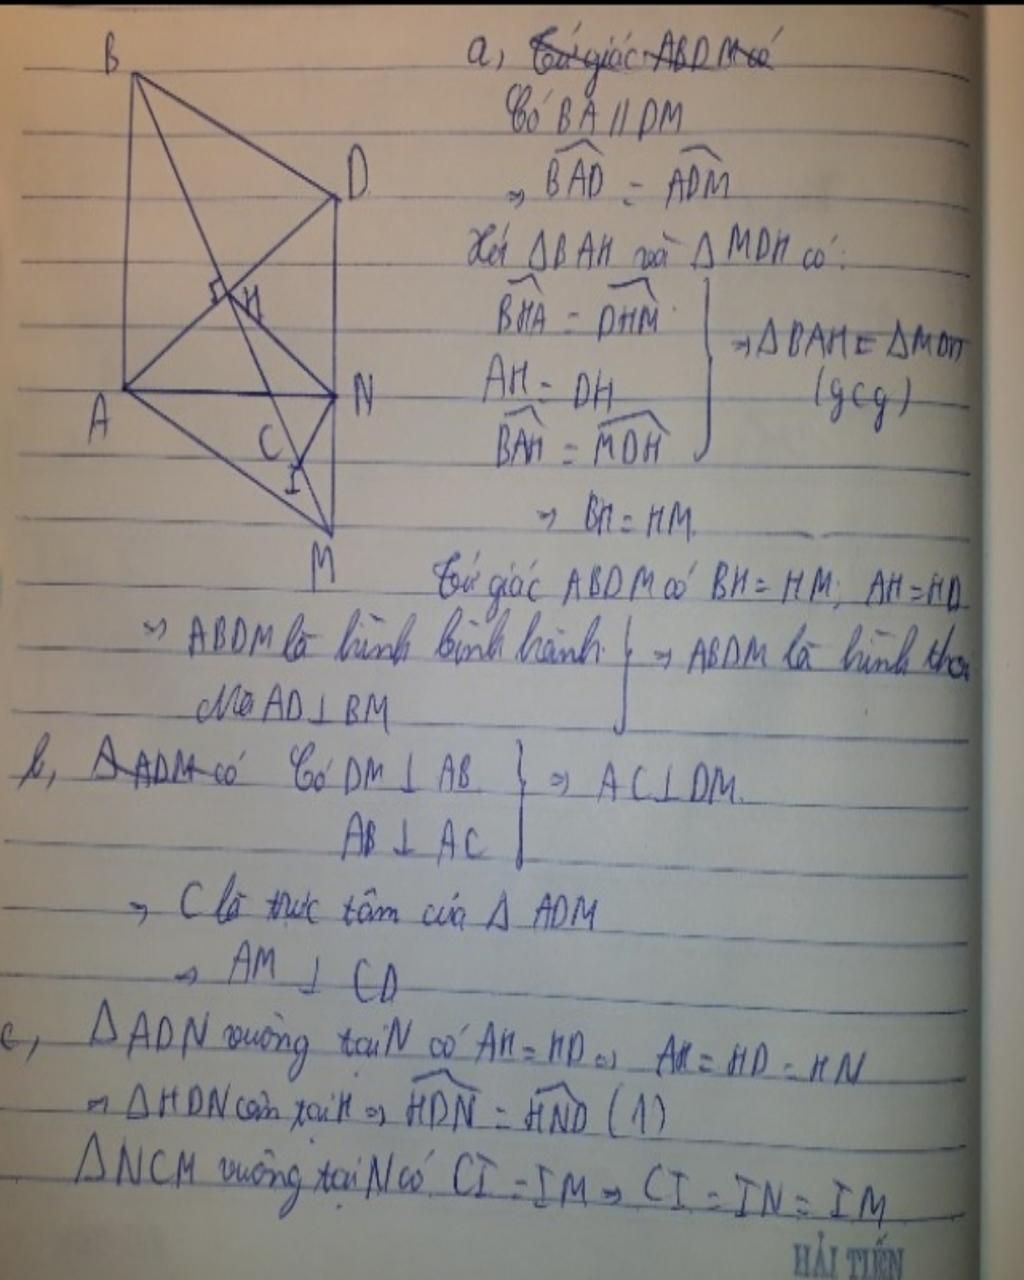 B
D
H
A
N
C
I
M
a, Tứ giác ABDM có
Có BA // DM
=> BAD = ADM
Xét ΔBAH và ΔMDH có:
BHA = DHM
AH = DH
BAH = MDH
=> ΔBAH = ΔMDH
(gcg)
=> BH = HM
Tứ giác ABDM có BH = HM; AH = HD
=> ABDM là hình bình hành
Mà AD ⊥ BM
=> ABDM là hình thoi
b, ΔADM có Có DM ⊥ AB
AB ⊥ AC
=> AC ⊥ DM.
=> C là trực tâm của Δ ADM
=> AM ⊥ CD
c, ΔADN vuông tại N có AH = HD => AH = HD = HN
=> ΔHDN cân tại H => HDN = HND (1)
ΔNCM vuông tại N có CI = IM => CI = IN = IM
HẢI TIẾN